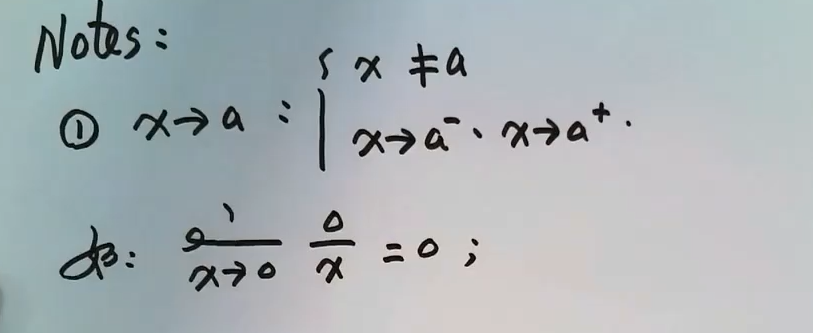 Notes:
① x→a : { x ≠ a
x→a⁻、x→a⁺.
如: lim x→0 0/x = 0 ;